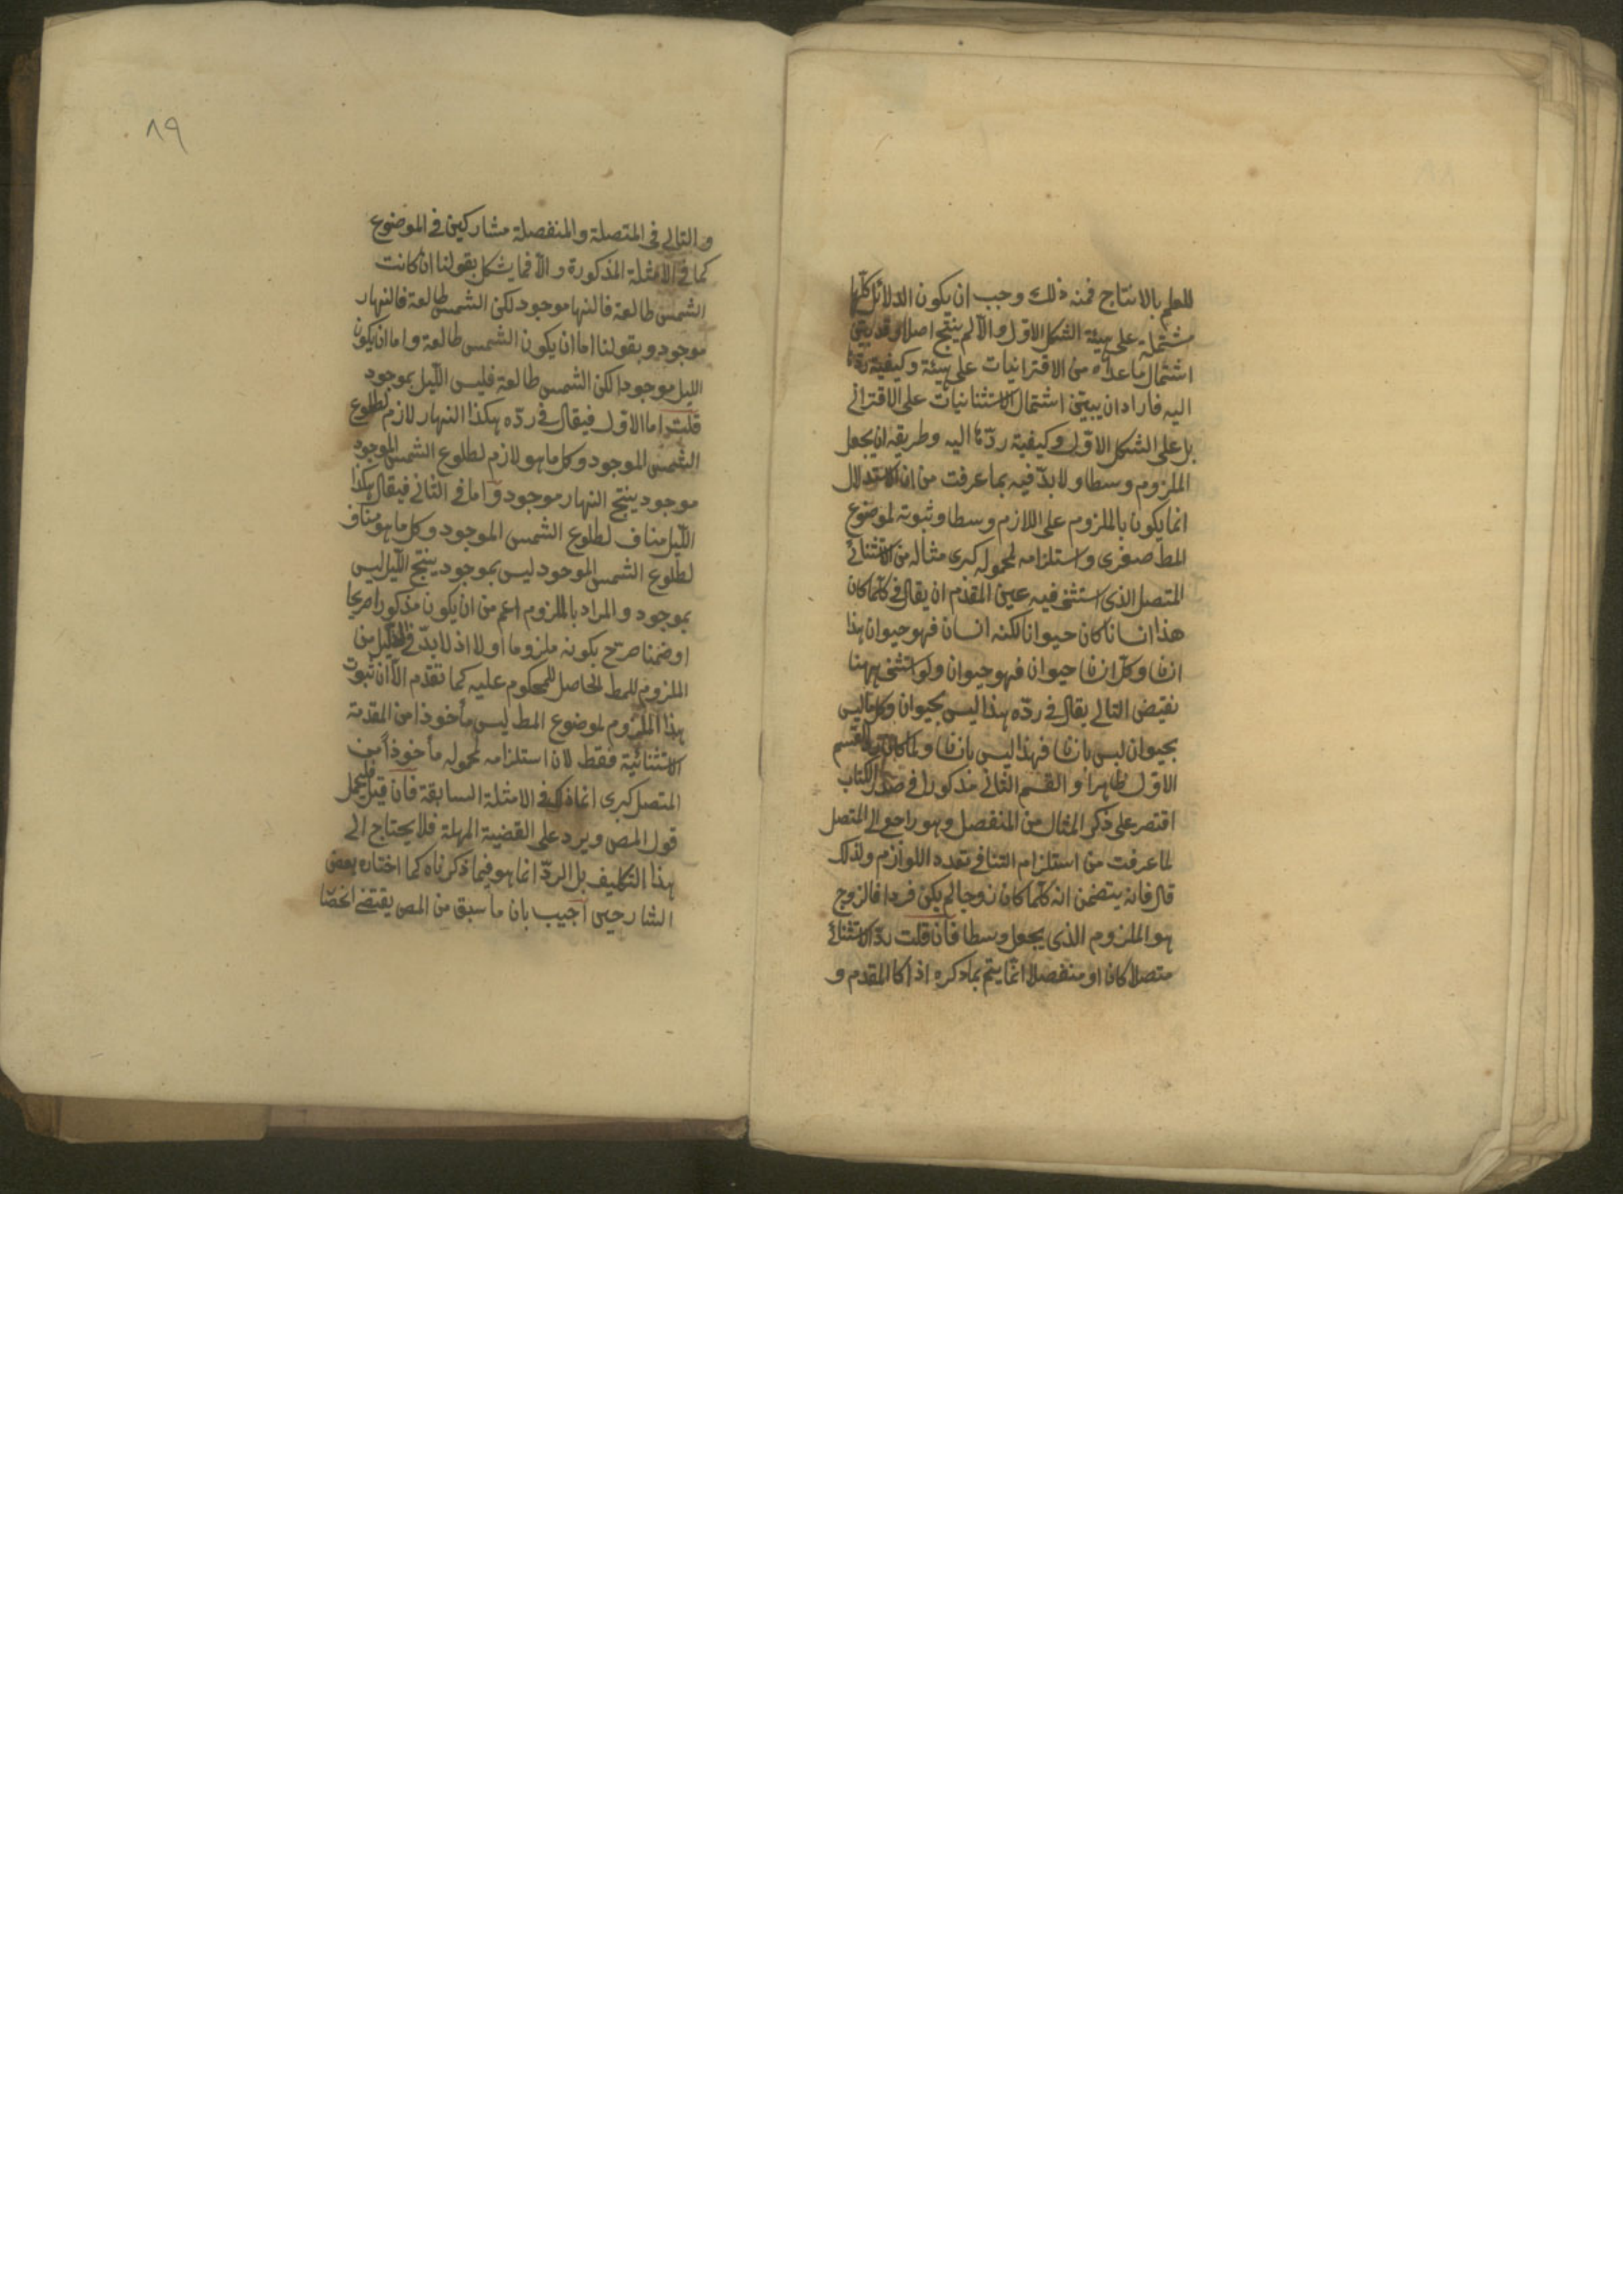 للعلم بالانتاج فمنه ذلك وجب ان يكون الدلائل كلها
مشتملة على هيئة الشكل الاول والا لم ينتج اصلا وقد بين
اشتمال ما عداه من الاقترانيات على هيئة وكيفية ردها
اليه فاراد ان يبين اشتمال الاستثنائيات على الاقتراني
بل على الشكل الاول وكيفية ردها اليه وطريقه ان يجعل
الملزوم وسطا ولا بد فيه بما عرفت من ان الاستدلال
انما يكون بالملزوم على اللازم وسطا وثبوته لموضوع
المط صغرى واستلزامه لمحموله كبرى مثاله من الاستثنائي
المتصل الذي استثنى فيه عين المقدم ان يقال في كلما كان
هذا انسانا كان حيوانا لكنه انسان فهو حيوان هذا
انسان وكل انسان حيوان فهو حيوان ولو استثنى ههنا
نقيض التالي يقال في رده هذا ليس بحيوان وكل ما ليس
بحيوان ليس بانسان فهذا ليس بانسان ولما كان القسم
الاول ظاهرا والقسم الثاني مذكورا في صدر الكتاب
اقتصر على ذكر المثال من المنفصل وهو راجع الى المتصل
لما عرفت من استلزام التنافي تعدد اللوازم ولذلك
قال فانه يتضمن انه كلما كان زوجا لم يكن فردا فالزوج
هو الملزوم الذي يجعل وسطا فان قلت رد الاستثنائي
متصلا كان او منفصلا انما يتم بما ذكره اذا كا المقدم و
٨٩
والتالي في المتصلة والمنفصلة مشاركين في الموضوع
كما في الامثلة المذكورة والا فما يشكل بقولنا ان كانت
الشمس طالعة فالنهار موجود لكن الشمس طالعة فالنهار
موجود وبقولنا اما ان يكون الشمس طالعة واما ان يكون
الليل موجودا لكن الشمس طالعة فليس الليل بموجود
قلت اما الاول فيقال في رده هكذا النهار لازم لطلوع
الشمس الموجود وكل ما هو لازم لطلوع الشمس الموجود
موجود ينتج النهار موجود واما في الثاني فيقال هكذا
الليل مناف لطلوع الشمس الموجود وكل ما هو مناف
لطلوع الشمس الموجود ليس بموجود ينتج الليل ليس
بموجود والمراد بالملزوم اعم من ان يكون مذكورا صريحا
او ضمنا صرح بكونه ملزوما او لا اذ لا بد في الدليل من
الملزوم للمط الحاصل للمحكوم عليه كما تقدم الا ان ثبوت
هذا الملزوم لموضوع المط ليس مأخوذا من المقدمة
الاستثنائية فقط لان استلزامه لمحموله مأخوذا من
المتصل كبرى انما ذلك في الامثلة السابقة فان قيل فليحمل
قول المص ويرد على القضية المهملة فلا يحتاج الى
هذا التكليف بل الرد انما هو فيما ذكرناه كما اختاره بعض
الشارحين اجيب بان ما سبق من المص يقتضي